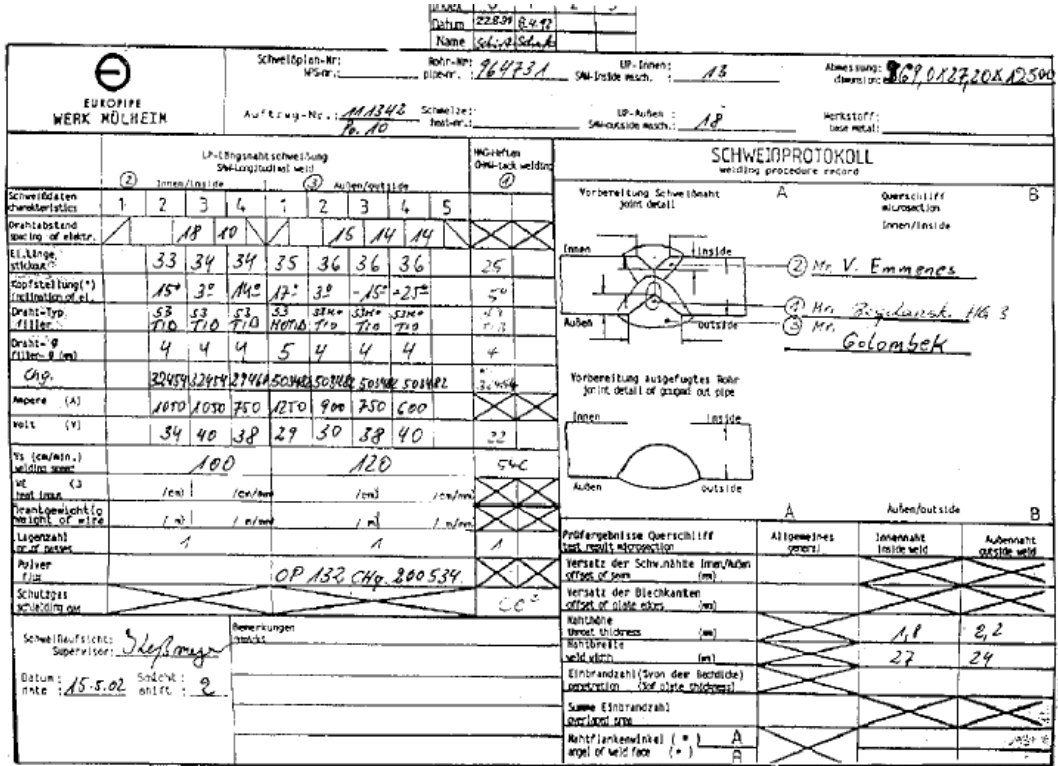 Datum 22.8.91 8.4.92
Name
EUROPIPE
WERK MÜLHEIM
Schweißplan-Nr:
WPS-nr.:
Rohr-Nr:
pipe-nr.: 964731
UP-Innen:
SAW-Inside masch. : 13
Abmessung:
dimension: 869,0X27,20X12500
Auftrag-Nr.: 111342
Po. 10
Schmelze:
heat-nr.:
UP-Außen :
SAW-outside masch.: 18
Werkstoff:
base metal:
UP-Längsnahtschweißung
SAW-Longitudinal weld
MAG-Heften
GMAW-tack welding
② Innen/inside ③ Außen/outside ①
Schweißdaten
charakteristics 1 2 3 4 1 2 3 4 5
Drahtabstand
spacing of elektr. 18 10 15 14 14
El.Länge,
stickout 33 34 34 35 36 36 36 25
Kopfstellung(°)
inclination of el. 15° 3° 14° 17° 3° -15° -25° 5°
Draht-Typ
filler. S3 TiB S3 TiB S3 TiB S3 MoTiB
Draht-Ø
filler-Ø (mm) 4 4 4 5 4 4 4 4
Chg. 32454 32454 503482 503482 503482 503482
Ampere (A) 1050 1050 750 1250 900 750 600
Volt (V) 34 40 38 29 30 38 40 22
Vs (cm/min.)
welding speed 100 120
heat input /cm) /cm/mm /cm) /cm/mm
Drahtgewicht(g
weight of wire / m) / m/mm / m) / m/mm
Lagenzahl
nr.of passes 1 1 1
Pulver
flux OP 132 CHg. 200534
Schutzgas
schielding gas
Schweißaufsicht:
Supervisor:
Datum :
date : 15.5.02
Schicht :
shift : 2
Bemerkungen
remarks
SCHWEIßPROTOKOLL
welding procedure record
Vorbereitung Schweißnaht
joint detail
A
Querschliff
microsection
B
Innen/inside
Innen inside
Außen outside
② Mr. V. Emmenes
① Mr.
③ Mr.
Golombek
Vorbereitung ausgefugtes Rohr
joint detail of gouged out pipe
Innen inside
Außen outside
A Außen/outside B
Prüfergebnisse Querschliff
test result microsection
Allgemeines
general
Innennaht
inside weld
Außennaht
outside weld
Versatz der Schw.nähte Innen/Außen
offset of seam (mm)
Versatz der Blechkanten
offset of plate edges (mm)
Nahthöhe
throat thickness (mm) 1,8 2,2
Nahtbreite
weld width (mm) 27 24
Einbrandzahl(%von der Blechdicke)
penetration (%of plate thickness)
Summe Einbrandzahl
overlaped area
Nahtflankenwinkel ( ° ) A
angel of weld face ( ° ) B